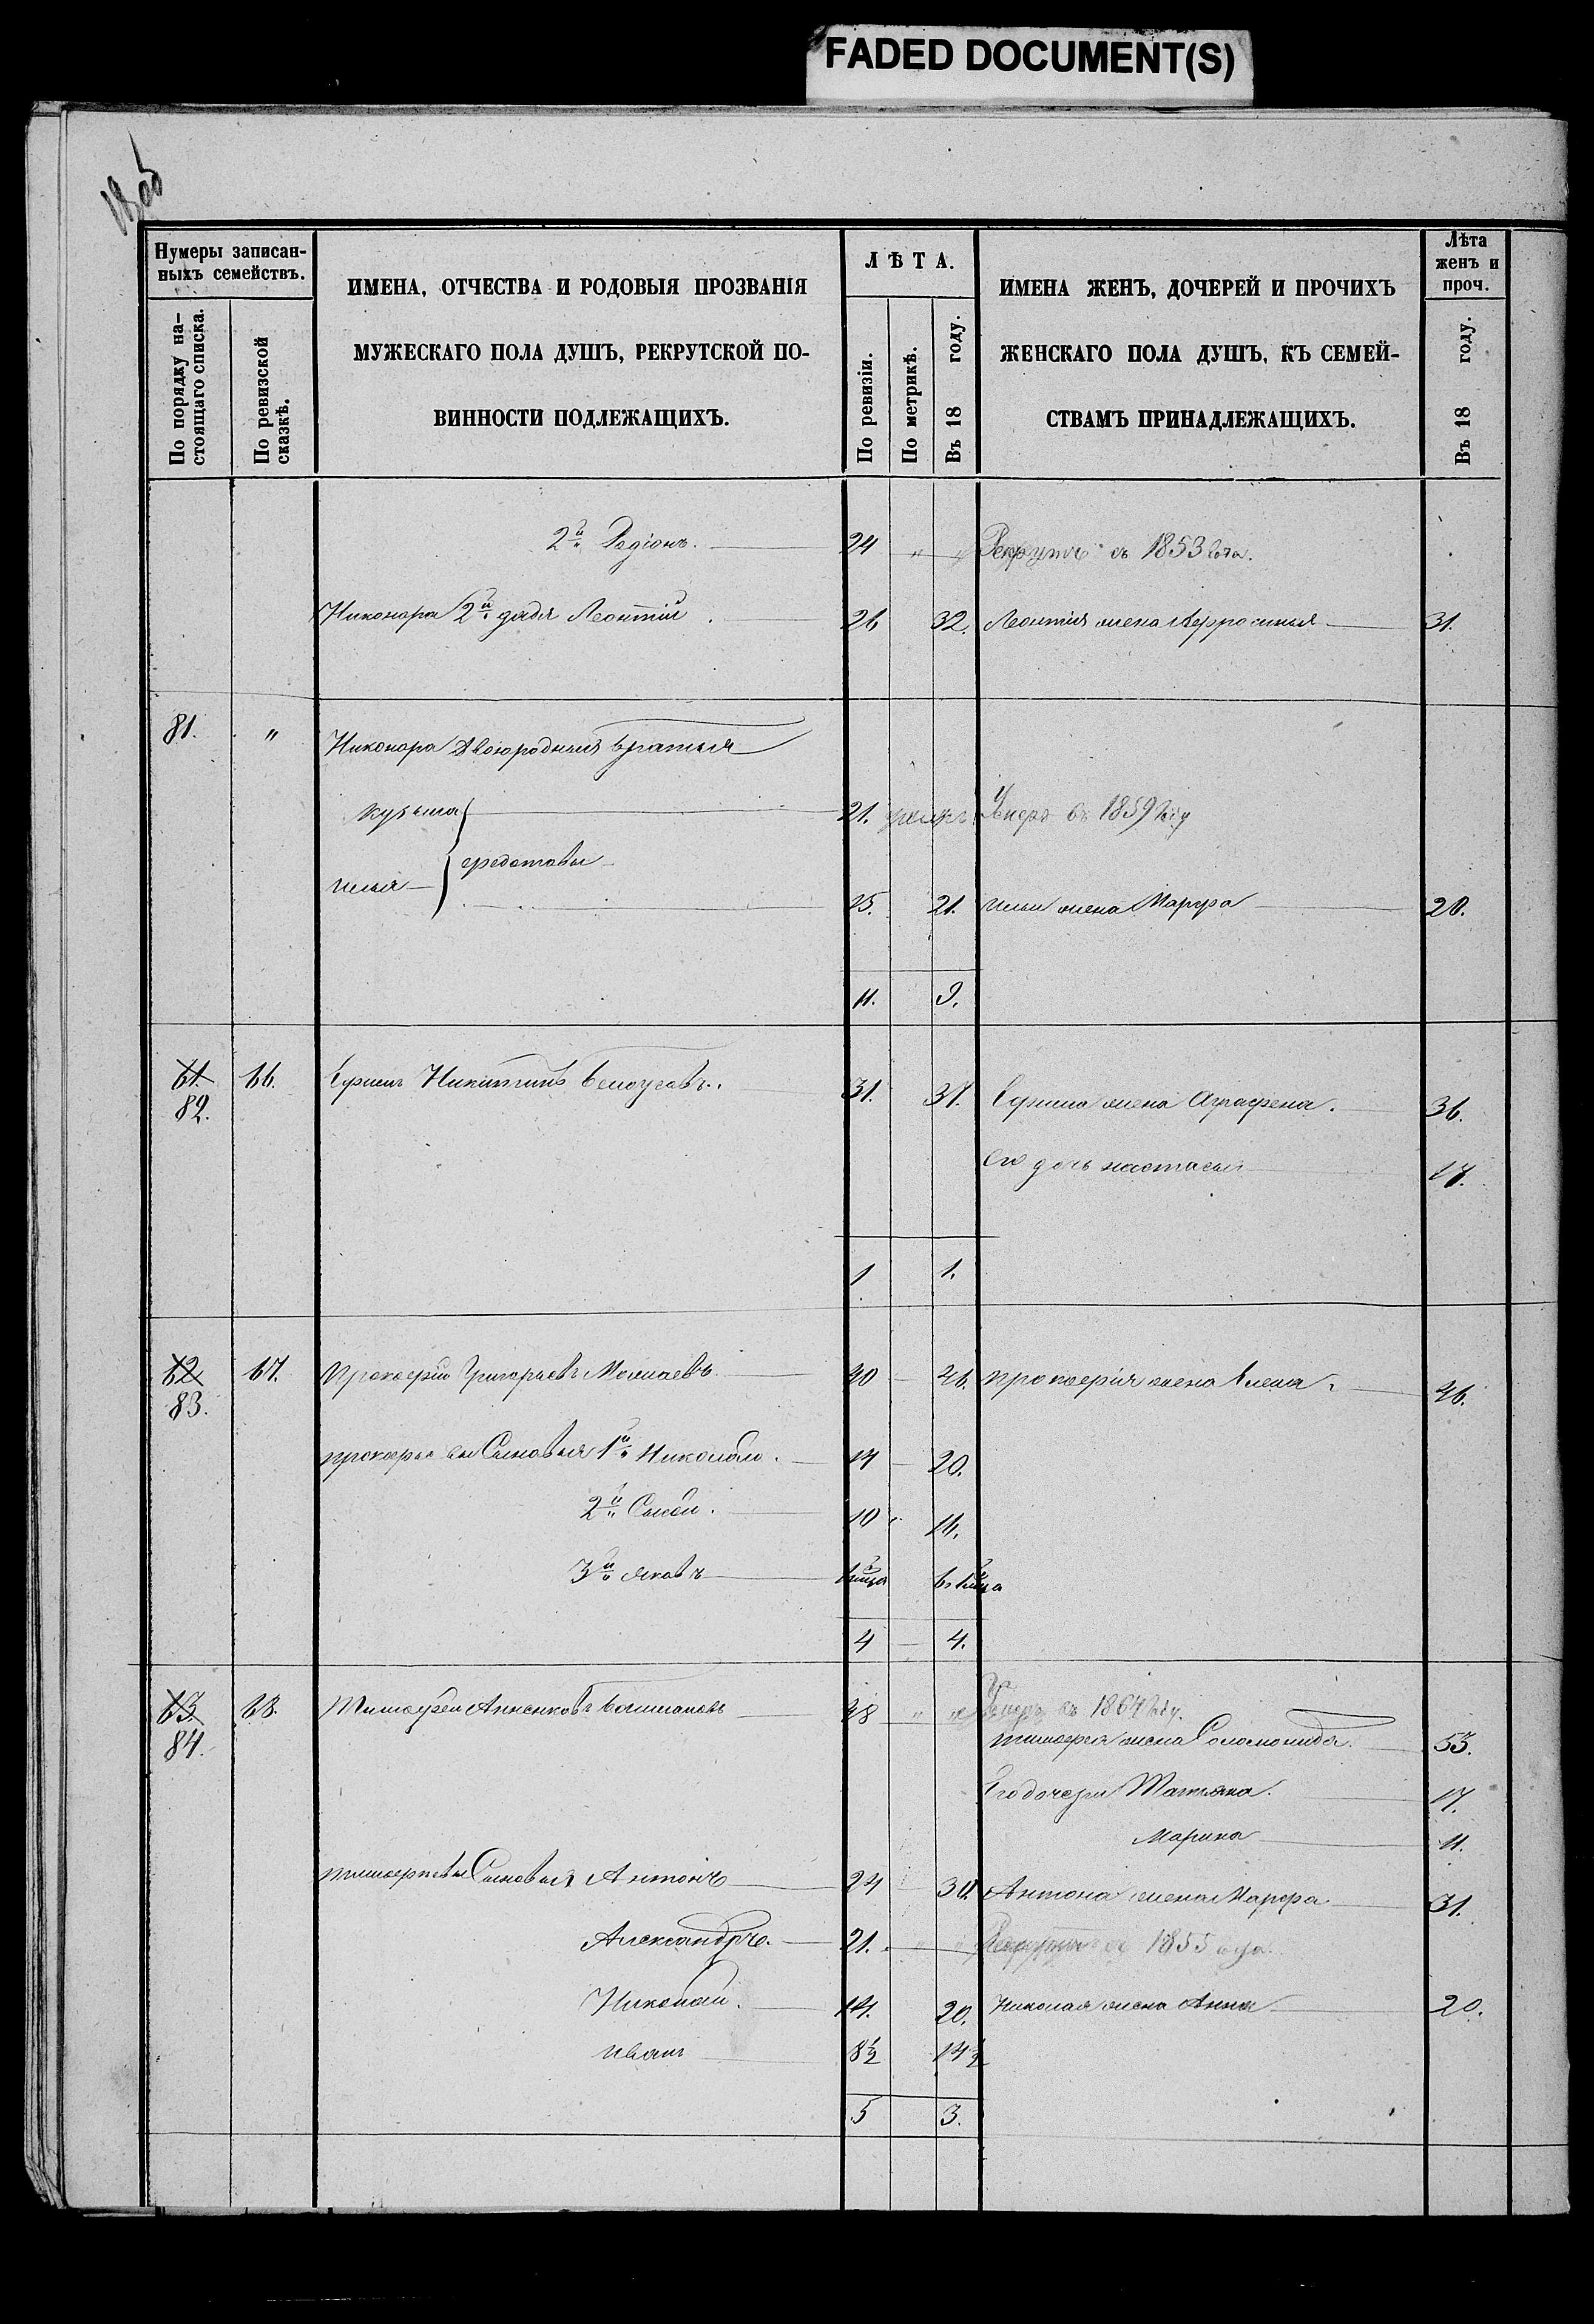 FADED DOCUMENT(S)
Нумеры записан-
ныхъ семействъ.
По порядку на-
стоящаго списка.
По ревизской
сказкѣ.
ИМЕНА, ОТЧЕСТВА И РОДОВЫЯ ПРОЗВАНІЯ
МУЖЕСКАГО ПОЛА ДУШЪ, РЕКРУТСКОЙ ПО-
ВИННОСТИ ПОДЛЕЖАЩИХЪ.
ЛѢТА.
По ревизіи.
По метрикѣ.
Въ 18 году.
ИМЕНА ЖЕНЪ, ДОЧЕРЕЙ И ПРОЧИХЪ
ЖЕНСКАГО ПОЛА ДУШЪ, КЪ СЕМЕЙ-
СТВАМЪ ПРИНАДЛЕЖАЩИХЪ.
Лѣта
женъ и
проч.
Въ 18 году.
2й Радіонъ. 24 " " Рекрутъ съ 1853 года.
Никонора 2й дядя Леонтій. 26 32. Леонтія жена 31.
81. " Никонора двоюродныя братья
Кузьма 21. умеръ въ 1859 году
Федотовы
Илья 15. 21. Ильи жена Марфа 20.
11. 9.
61. 66. Ефимъ Никитинъ Белоусовъ. 31. 37. Ефима жена Аграфена. 36.
82.
Его дочь Настасья 17.
1 1.
62 67. Прокофій Григорьевъ 40 46. Прокофія жена Елена. 46.
83.
Прокофьевы Сыновья 1й Николай. 14 20.
2й 10 16.
3й Яковъ
4 4.
63. 68. Тимофей 48 " " Умеръ въ 1864 году.
84. Тимофея жена Соломонида. 53.
Его дочери Татьяна. 17.
Марина 11.
Тимофеевы Сыновья Антонъ 24 30. Антона жена Марфа 31.
Александръ. 21. Рекрутъ съ 1855 года.
Николай. 14. 20. Николая жена Анна 20.
Иванъ 8½ 14½
5 3.